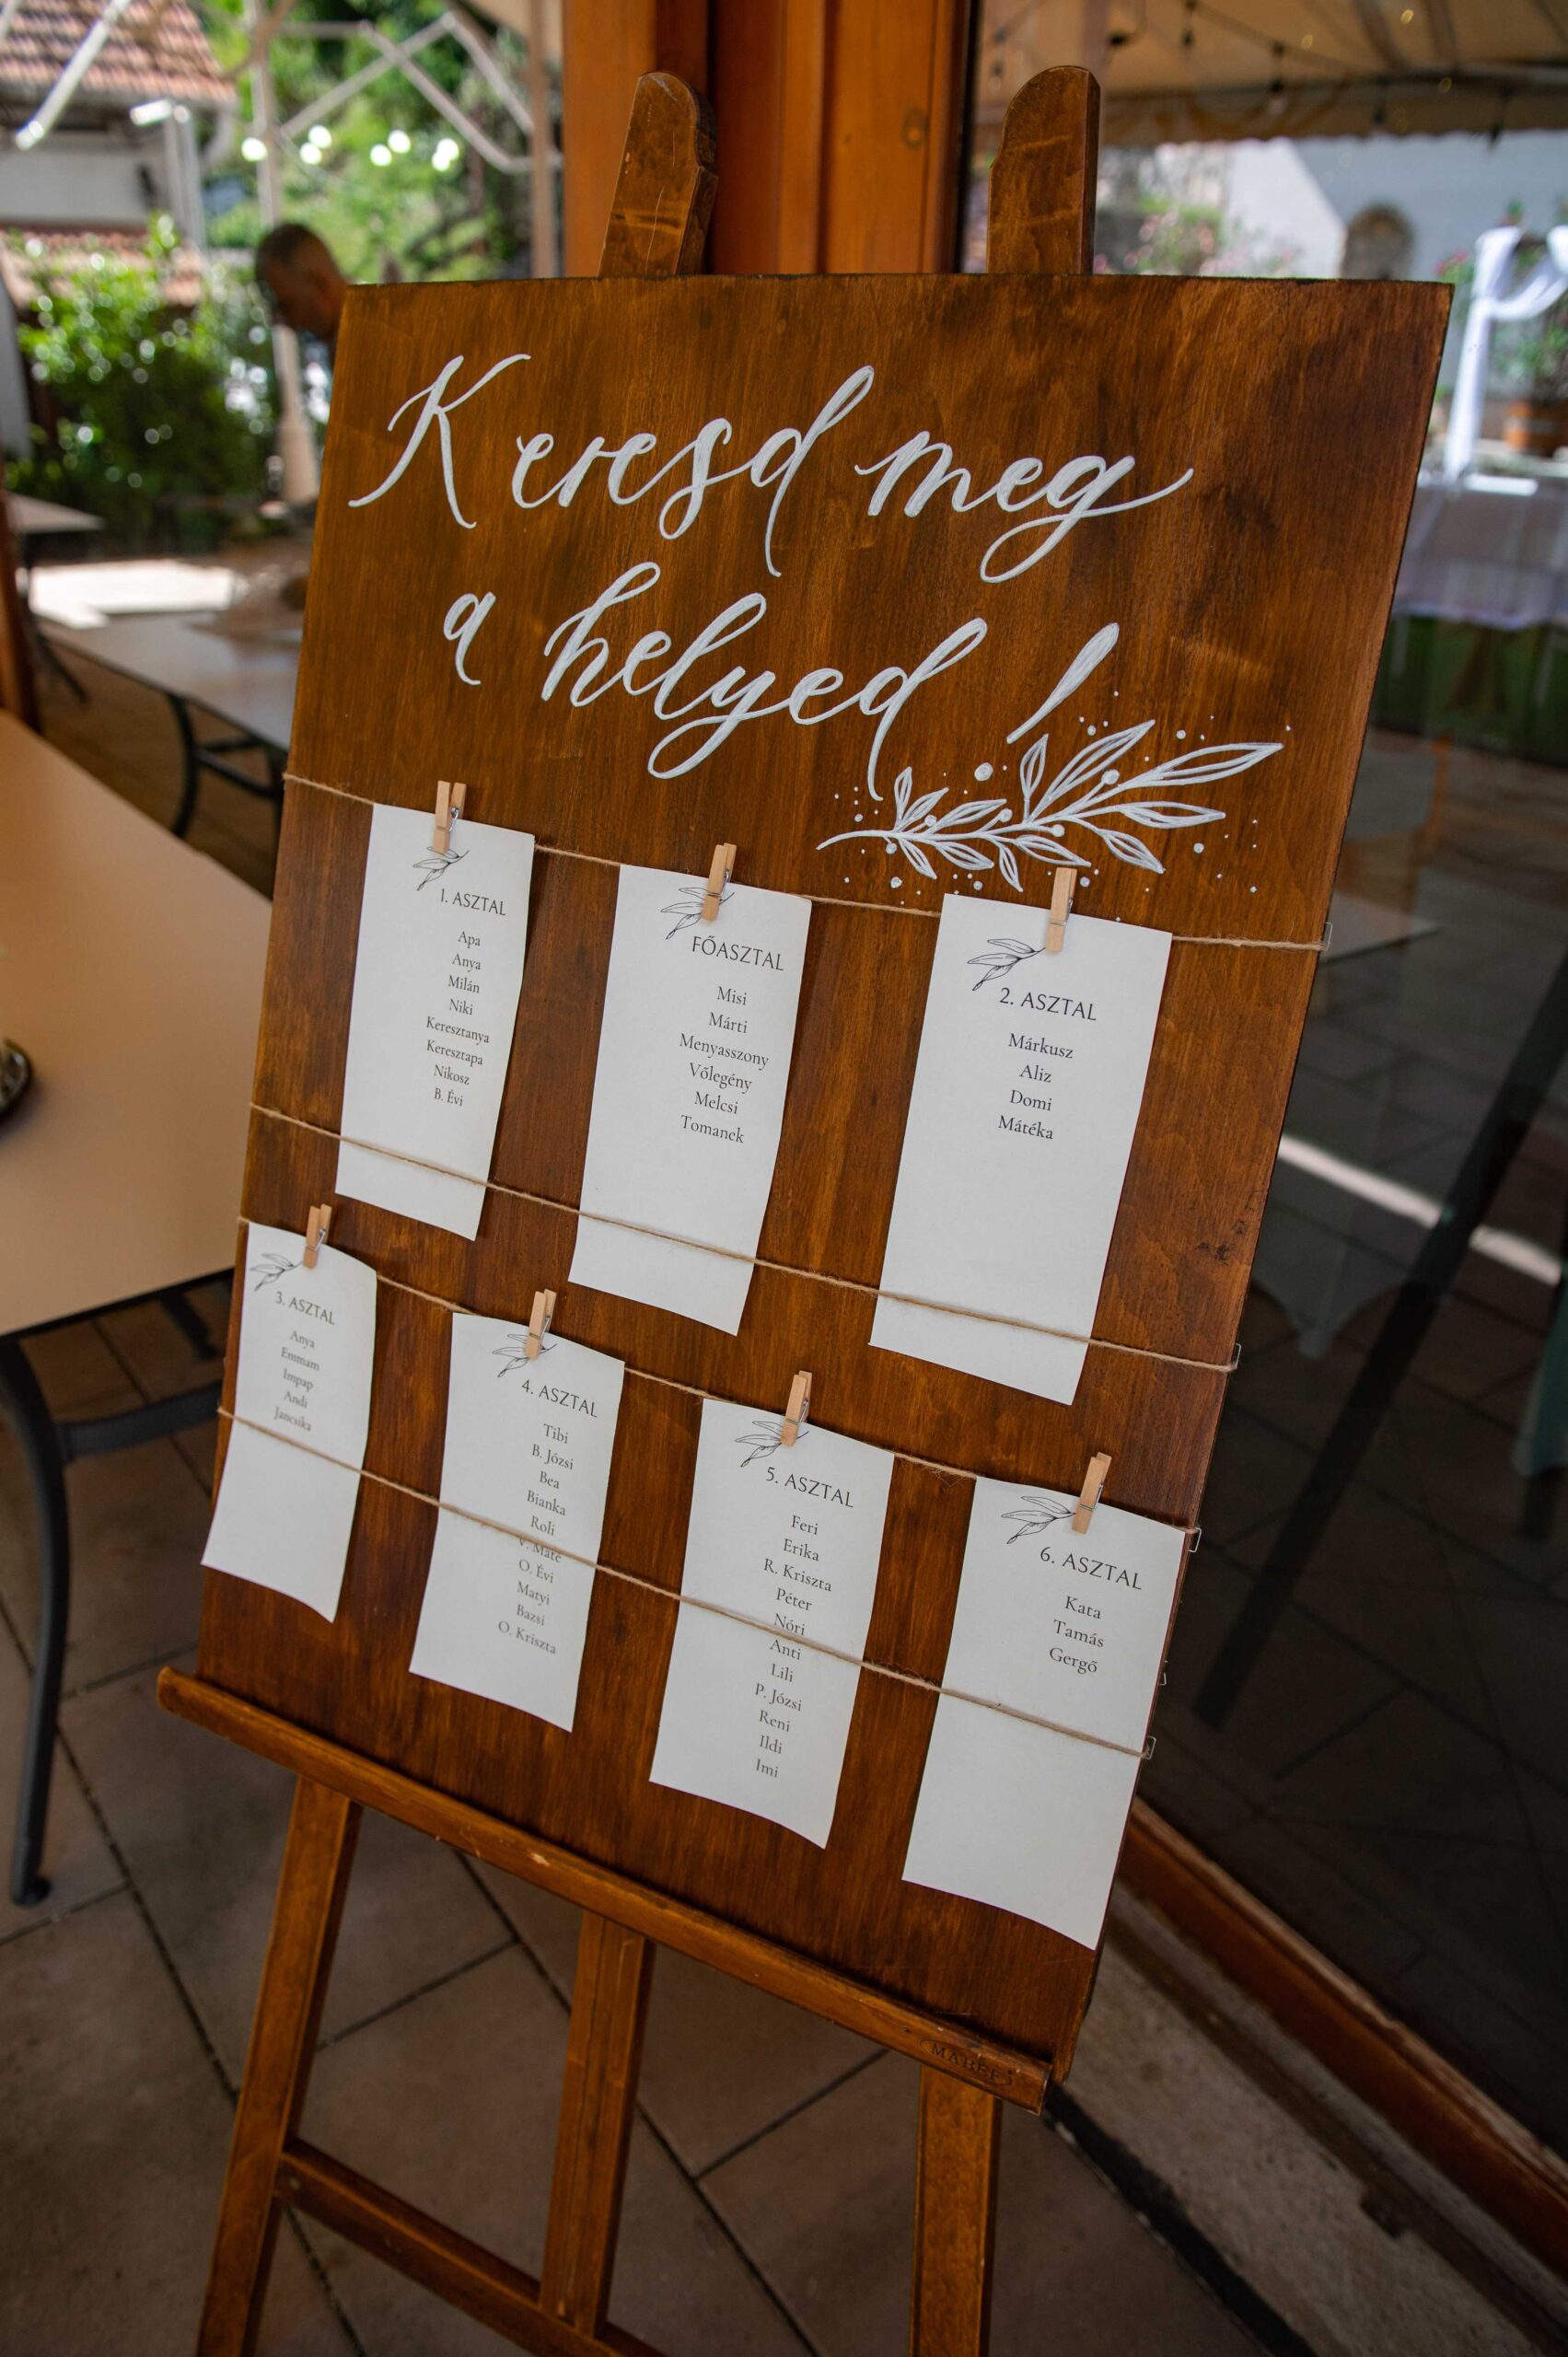 Keresd meg
a helyed!
1. ASZTAL
Apa
Anya
Milán
Niki
Keresztanya
Keresztapa
Nikosz
B. Évi
FŐASZTAL
Misi
Márti
Menyasszony
Vőlegény
Melcsi
Tomanek
2. ASZTAL
Márkusz
Aliz
Domi
Mátéka
3. ASZTAL
Anya
Emmam
Impap
Andi
Jancsika
4. ASZTAL
Tibi
B. Józsi
Bea
Bianka
Roli
V. Máté
O. Évi
Matyi
Bazsi
O. Kriszta
5. ASZTAL
Feri
Erika
R. Kriszta
Péter
Nóri
Anti
Lili
P. Józsi
Reni
Ildi
Imi
6. ASZTAL
Kata
Tamás
Gergő
MABEF